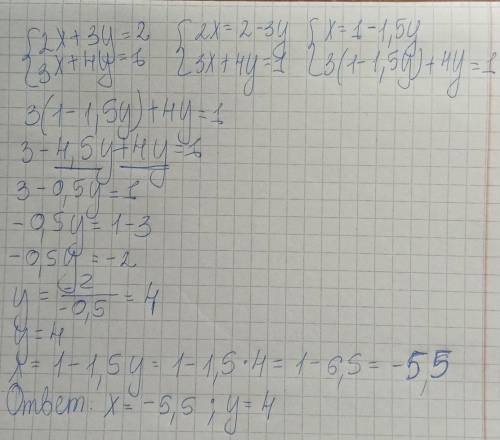 {2x+3y=2 {2x=2-3y {x=1-1,5y
{3x+4y=1 {3x+4y=1 {3(1-1,5y)+4y=1
3(1-1,5y)+4y=1
3-4,5y+4y=1
3-0,5y=1
-0,5y=1-3
-0,5y=-2
y=-2/-0,5=4
y=4
x=1-1,5y=1-1,5·4=1-6,5=-5,5
Ответ: x=-5,5; y=4